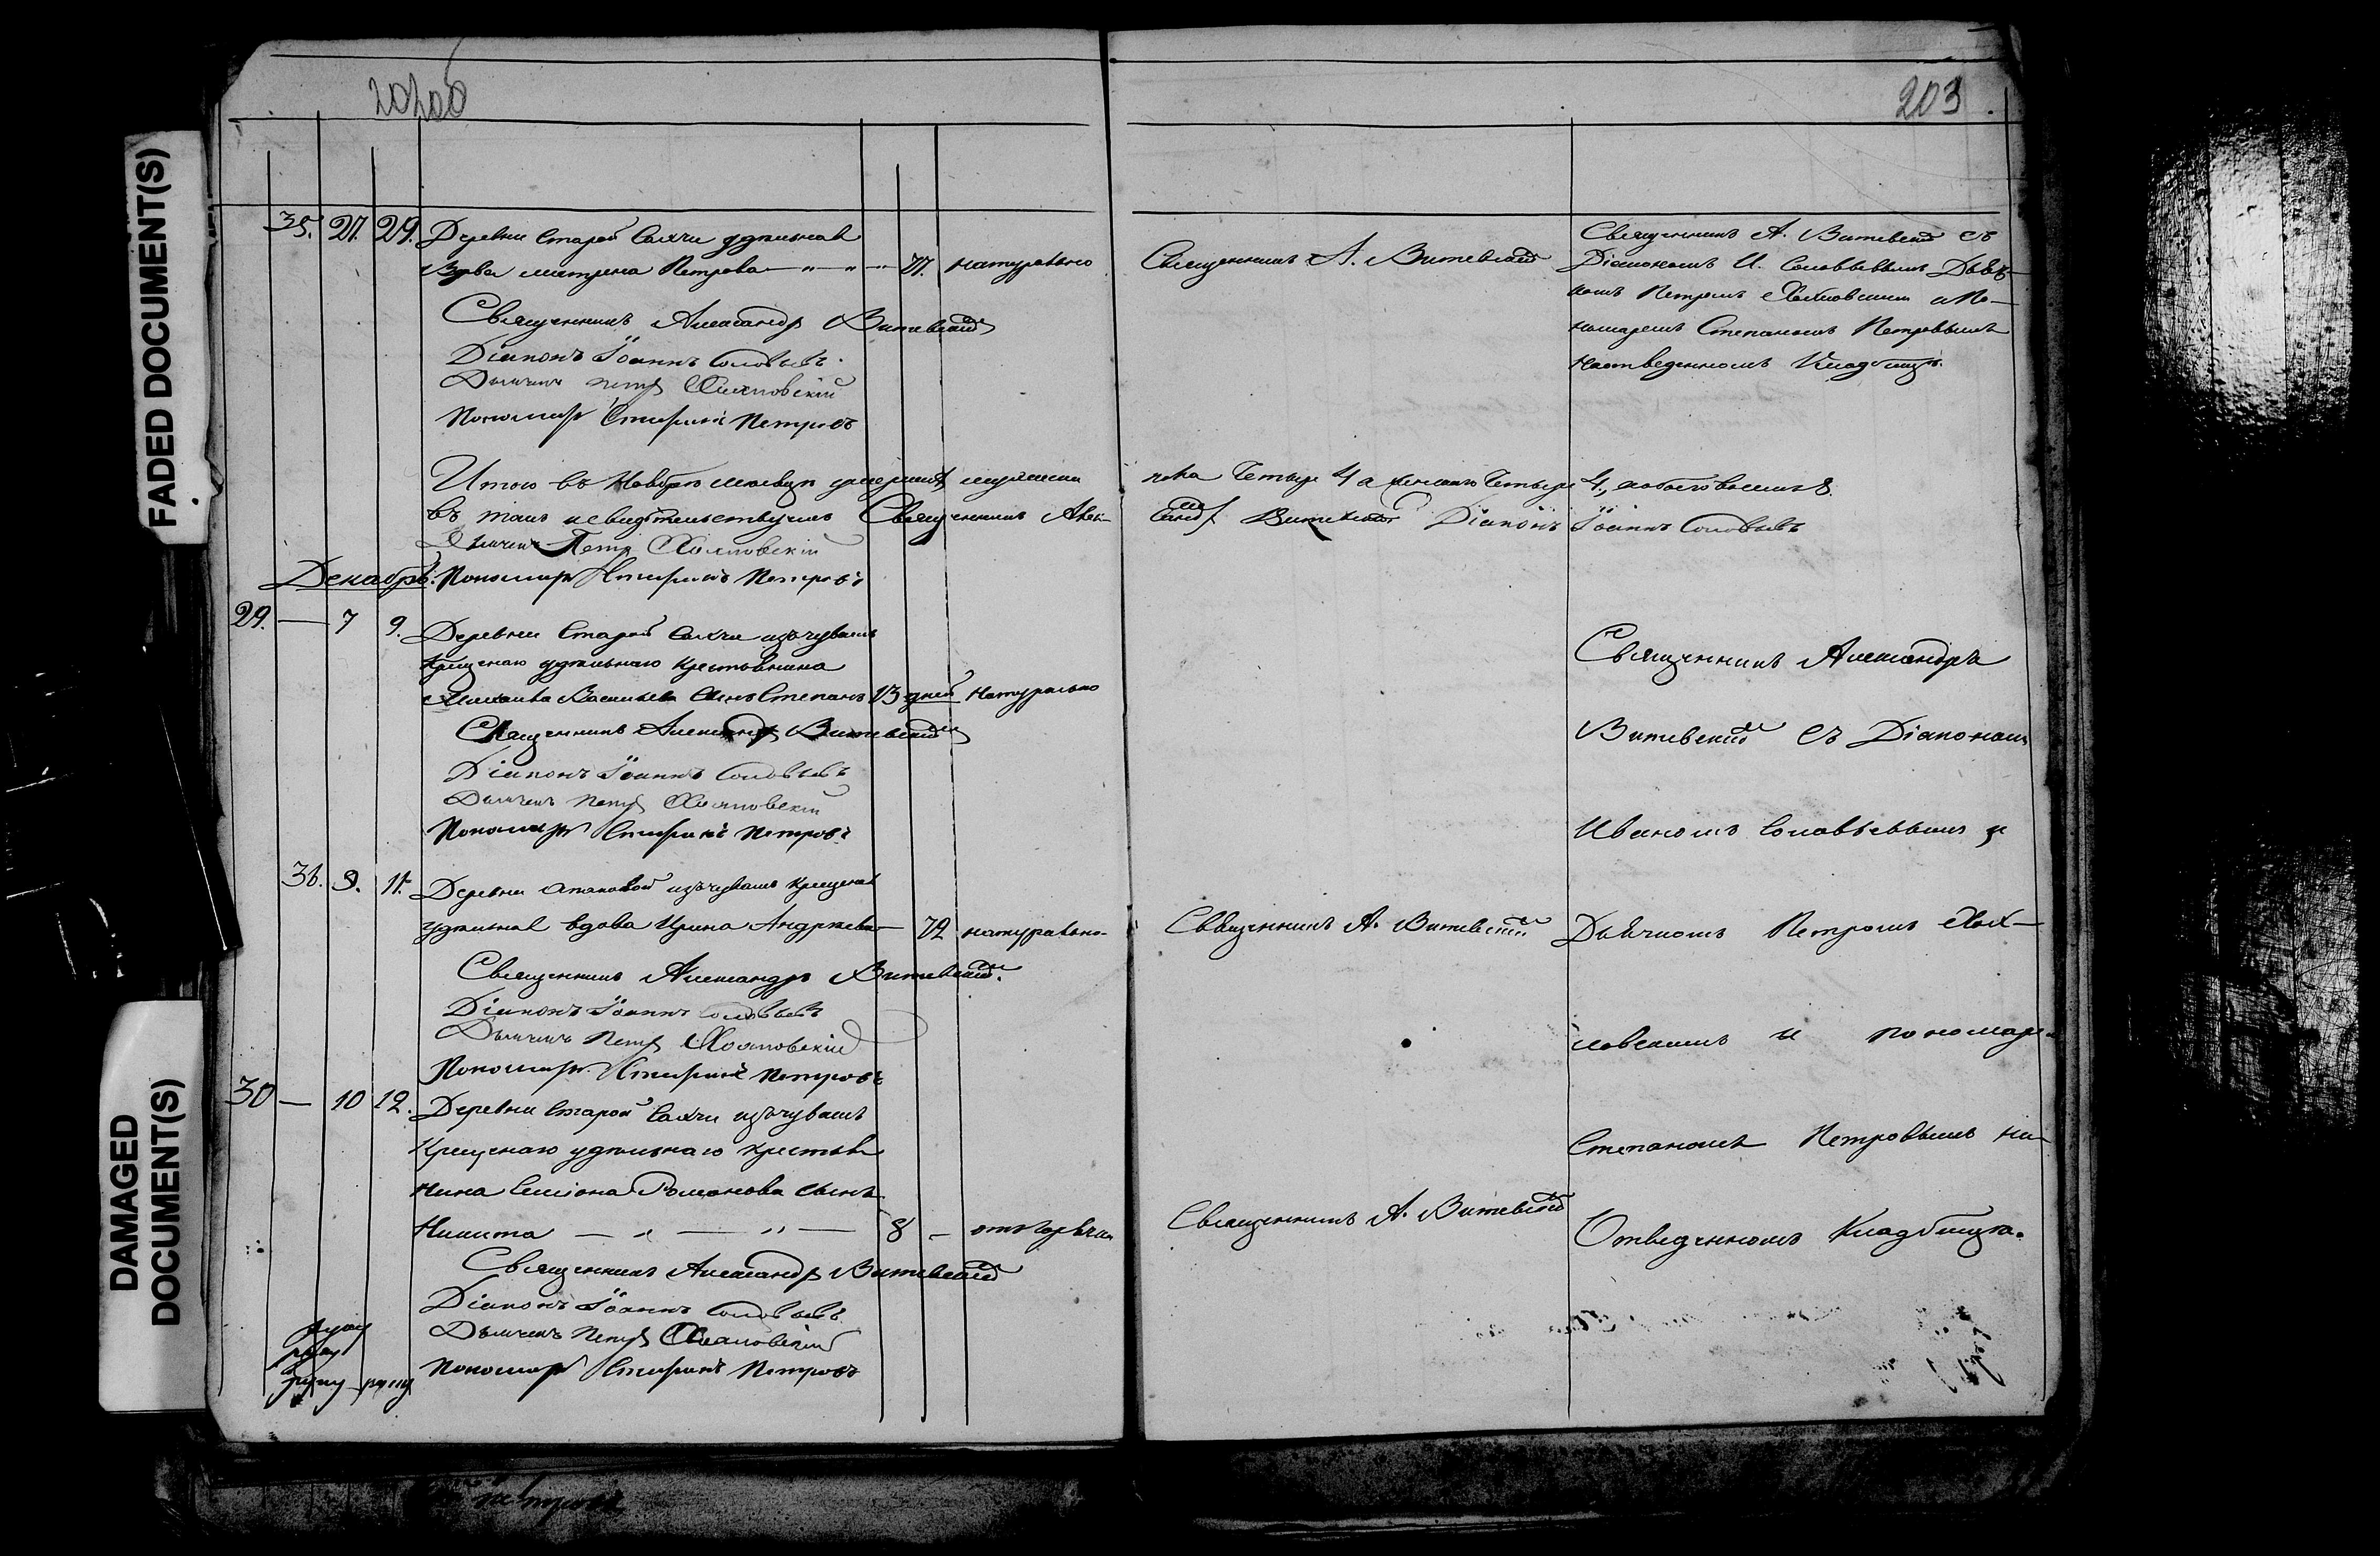 FADED DOCUMENT(S)
DAMAGED
DOCUMENT(S)
203
35. 27. 29. Деревни Старой Салчи удѣльная
Вдова Матрена Петрова — " — " — 77. натурально
Священникъ Александръ Витевскій
Діаконъ Іоаннъ Соловьевъ.
Дьячекъ Петръ Холмовскій
Пономарь Стефанъ Петровъ
Священникъ А. Витевскій
Священникъ А. Витевскій съ
Діакономъ И. Соловьевымъ Дьяч-
комъ Петромъ Холмовскимъ и По-
номаремъ Степаномъ Петровымъ
на отведенномъ Кладбищѣ.
Итого въ Ноябрѣ мѣсяцѣ умершихъ мужеска
пола Четыре 4 а женскаго Четыре 4, а обоего восемь 8.
въ томъ и свидѣтельствуемъ Священникъ Алек-
сандръ Витевскій Діаконъ Іоаннъ Соловьевъ
Дьячекъ Петръ Холмовскій
Декабрь. Пономарь Стефанъ Петровъ
29. — 7 9. Деревни Старой Салчи изъ чувашъ
крещенаго удѣльнаго крестьянина
Васильева сынъ Степанъ 13 дней натурально
Священникъ Александръ Витевскій
Діаконъ Іоаннъ Соловьевъ
Дьячекъ Петръ Холмовскій
Пономарь Стефанъ Петровъ
36. 9. 11. Деревни изъ чувашъ крещеная
удѣльная вдова Ирина Андреева — 72 натурально
Священникъ Александръ Витевскій.
Діаконъ Іоаннъ Соловьевъ
Дьячекъ Петръ Холмовскій
Пономарь Стефанъ Петровъ
30 — 10 12. Деревни Старой Салчи изъ чувашъ
Крещенаго удѣльнаго крестья
нина Симіона Романова сынъ
Никита — " — " — 8 — отъ горячки
Священникъ Александръ Витевскій
Діаконъ Іоаннъ Соловьевъ
Дьячекъ Петръ Холмовскій
Пономарь Стефанъ Петровъ
Священникъ А. Витевскій
Священникъ А. Витевскій
Священникъ Александръ
Витевскій съ Діакономъ
Иваномъ Соловьевымъ и
Дьячкомъ Петромъ Хол-
мовскимъ и пономаремъ
Степаномъ Петровымъ на
Отведенномъ Кладбищѣ.